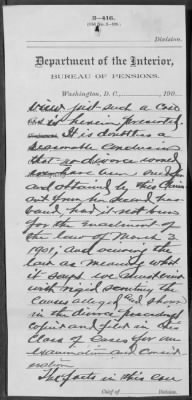 3—416.
Department of the Interior,
BUREAU OF PENSIONS.
Washington, D. C., 190
view just such a case
as is herein presented.
It is doubtless a
reasonable conclusion
that no divorce would
have been
and obtained by this
and from her second hus-
band, had it not been
for the enactment of
the law of March
1901; and
law as meaning what
it says we
with rigid scrutiny the
causes alleged and shown
in the divorce proceedings
copied and filed in this
class of cases for our
examination and consid-
eration
The facts in this case
Chief of Division.